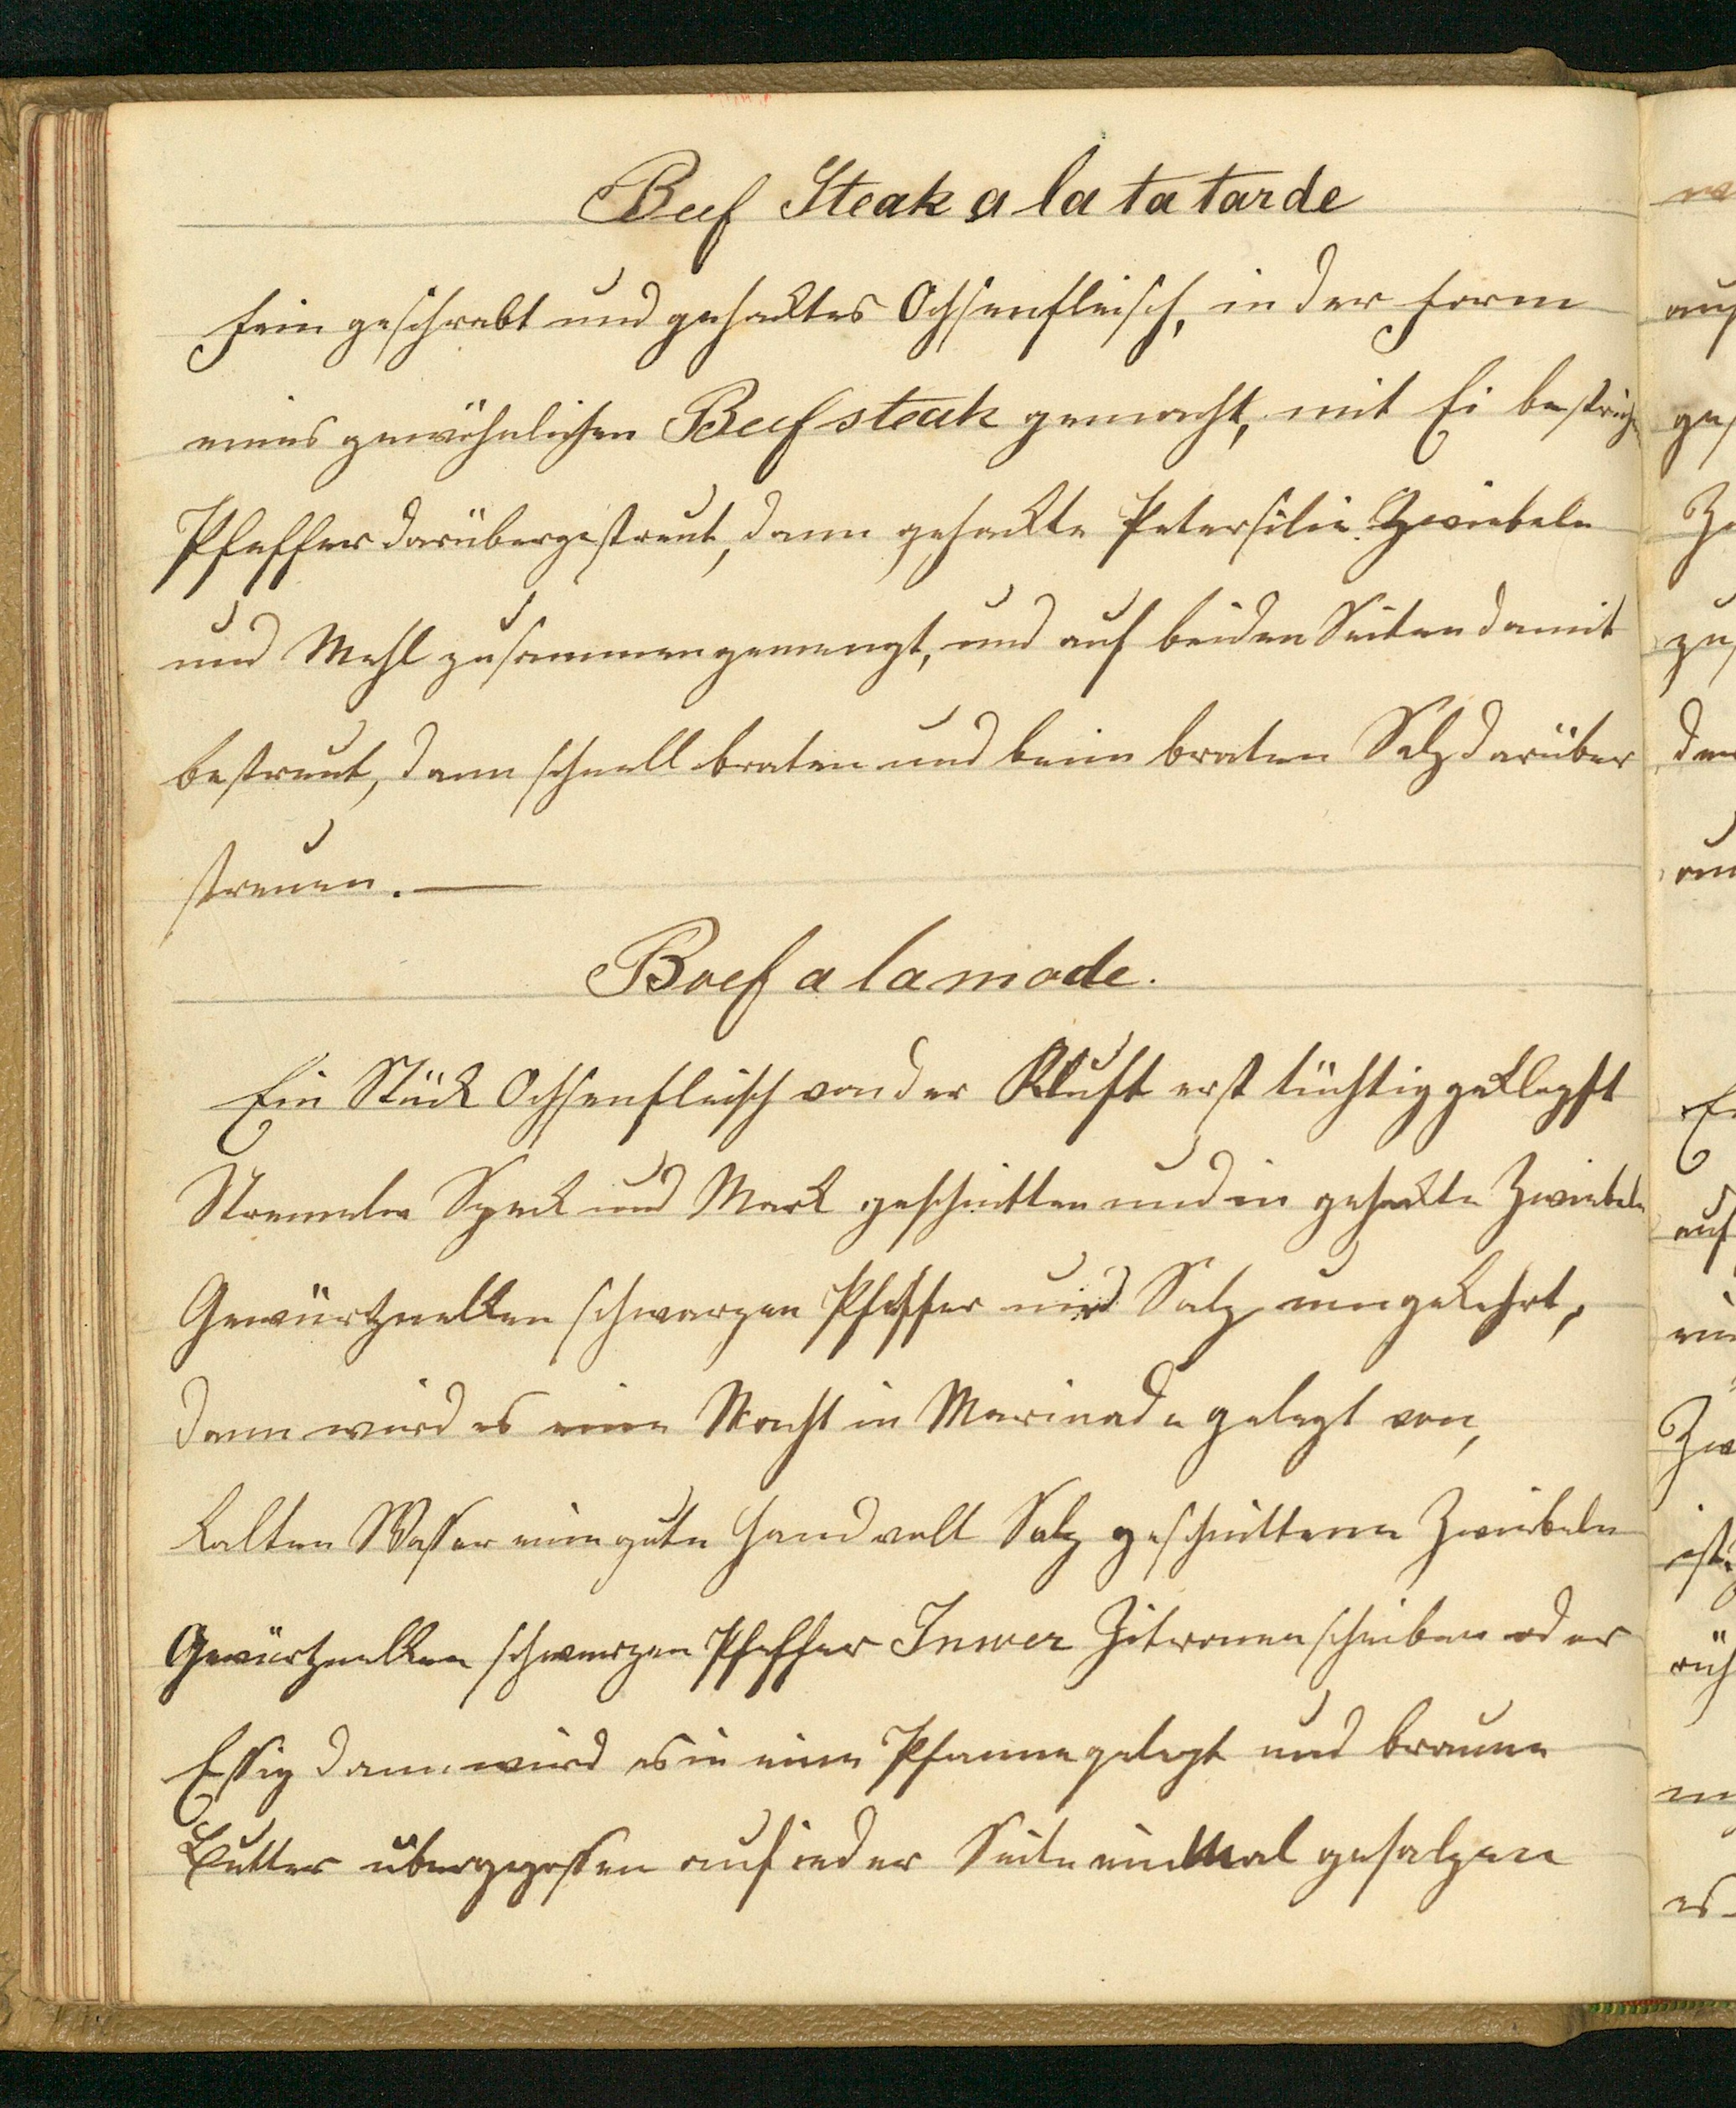 Beef Steak a la ta tarde
Fein geschrabt und gehacktes Ochsenfleisch, in der Form
eines gewöhnlichen Beefsteak gemacht, mit Ei bestrichen
Pfeffer darübergestreut, dann gehackte Petersilie Zwiebeln
und Mehl zusammengemengt, und auf beiden Seiten damit
bestreut, dann schnell braten und beim braten Salz darüber
streuen. —
Boef a la mode.
Ein Stück Ochsenfleisch von der Kluft erst tüchtig geklopft
Stremeln Speck und Mark geschnitten und in gehackte Zwiebeln
Gewürtznelken schwarzen Pfeffer und Salz umgekehrt,
dann wird es eine Nacht in Marinade gelegt von,
kalten Wasser eine gute Hand voll Salz geschnittene Zwiebeln
Gewürtznelken schwarzen Pfeffer Inwer Zitronenscheiben oder
Essig dann wird es in eine Pfanne gelegt und braune
Butter übergegossen auf ieder Seite einMal gesalzen